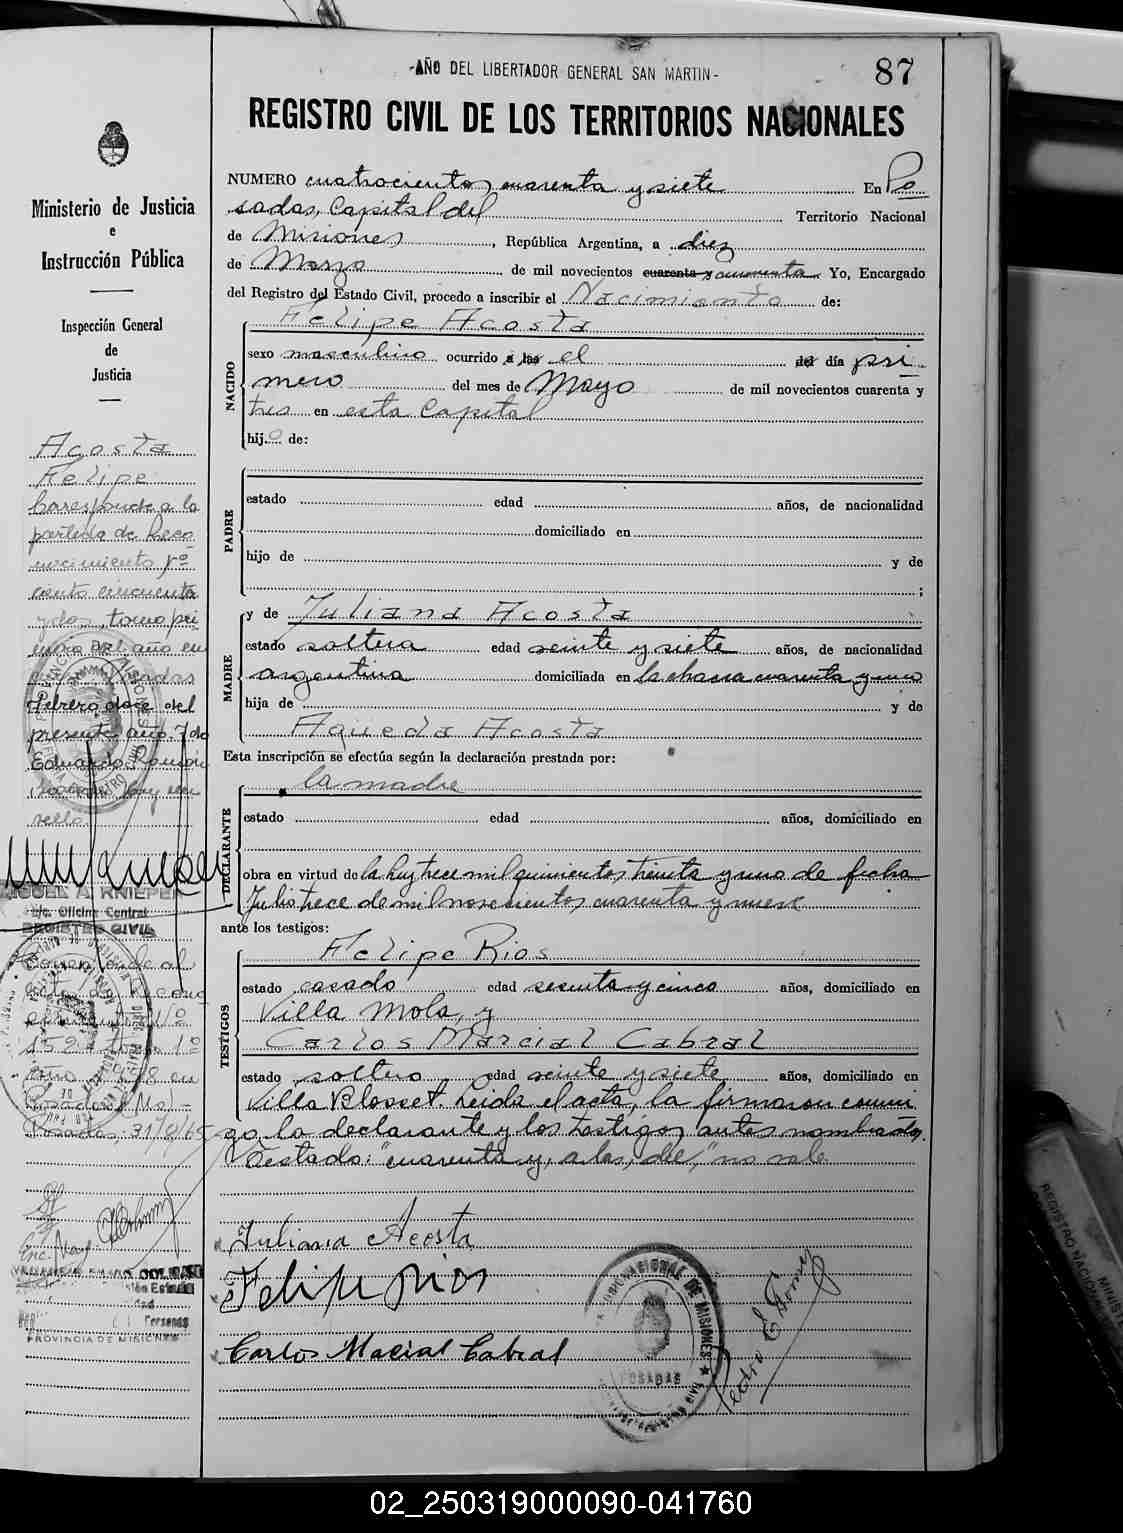 -AÑO DEL LIBERTADOR GENERAL SAN MARTIN-
87
REGISTRO CIVIL DE LOS TERRITORIOS NACIONALES
Ministerio de Justicia
e
Instrucción Pública
Inspección General
de
Justicia
Acosta
Felipe
Corresponde a la
partida de Reco
nocimiento nº
ciento cincuenta
y dos, tomo pri
mero del año en
Posadas
Febrero doce del
presente año. Fdo
Eduardo
hay un
sello.
KNIEPER
Oficina Central
REGISTRO CIVIL
Corresponde al
acta de Recono
cimiento Nº
152 tomo 1º
año 1948 en
Posadas (Ms)-
Posadas, 31/8/65
PROVINCIA DE MISIONES
NUMERO cuatrocientos cuarenta y siete En Po
sadas, Capital del Territorio Nacional
de Misiones, República Argentina, a diez
de Marzo de mil novecientos cuarenta y cincuenta Yo, Encargado
del Registro del Estado Civil, procedo a inscribir el Nacimiento de:
NACIDO
Felipe Acosta
sexo masculino ocurrido a las el del día pri
mero del mes de Mayo de mil novecientos cuarenta y
tres en esta Capital
hijo de:
PADRE
estado edad años, de nacionalidad
domiciliado en
hijo de y de
;
MADRE
y de Juliana Acosta
estado soltera edad veinte y siete años, de nacionalidad
argentina domiciliada en la chacra cuarenta y uno
hija de y de
Agueda Acosta
Esta inscripción se efectúa según la declaración prestada por:
DECLARANTE
la madre
estado edad años, domiciliado en
obra en virtud de la ley trece mil quinientos treinta y uno de fecha
Julio trece de mil novecientos cuarenta y nueve
ante los testigos:
TESTIGOS
Felipe Rios
estado casado edad sesenta y cinco años, domiciliado en
Villa Mola, y
Carlos Marcial Cabral
estado soltero edad veinte y siete años, domiciliado en
Villa Blosset. Leida el acta, la firmaron conmi
go la declarante y los testigos antes nombrados.
Testado: "cuarenta y, a las, del," no vale
Juliana Acosta
Felipe Rios
Carlos Macial Cabral
NACIONAL DE MISIONES
POSADAS
Pedro E. Gomez
REGISTRO NACIONAL
02_250319000090-041760